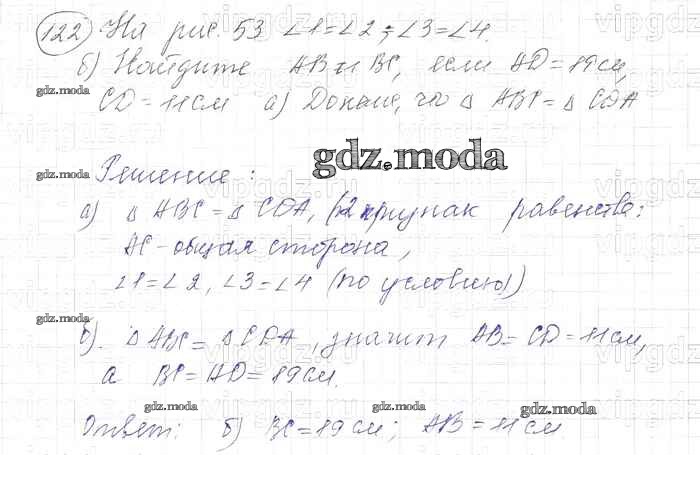 122 На рис. 53 ∠1=∠2; ∠3=∠4.
б) Найдите AB и BC, если AD = 19 см,
gdz.moda
CD = 11 см а) Докаж., что △ ABC = △ CDA
gdz.moda
gdz.moda Решение :
а) △ ABC = △ CDA, (2 признак равенства:
AC - общая сторона,
∠1=∠2, ∠3=∠4 (по условию))
gdz.moda
б). △ ABC = △ CDA, значит AB = CD = 11 см,
а BC = AD = 19 см.
gdz.moda gdz.moda gdz.moda
Ответ: б) BC = 19 см; AB = 11 см